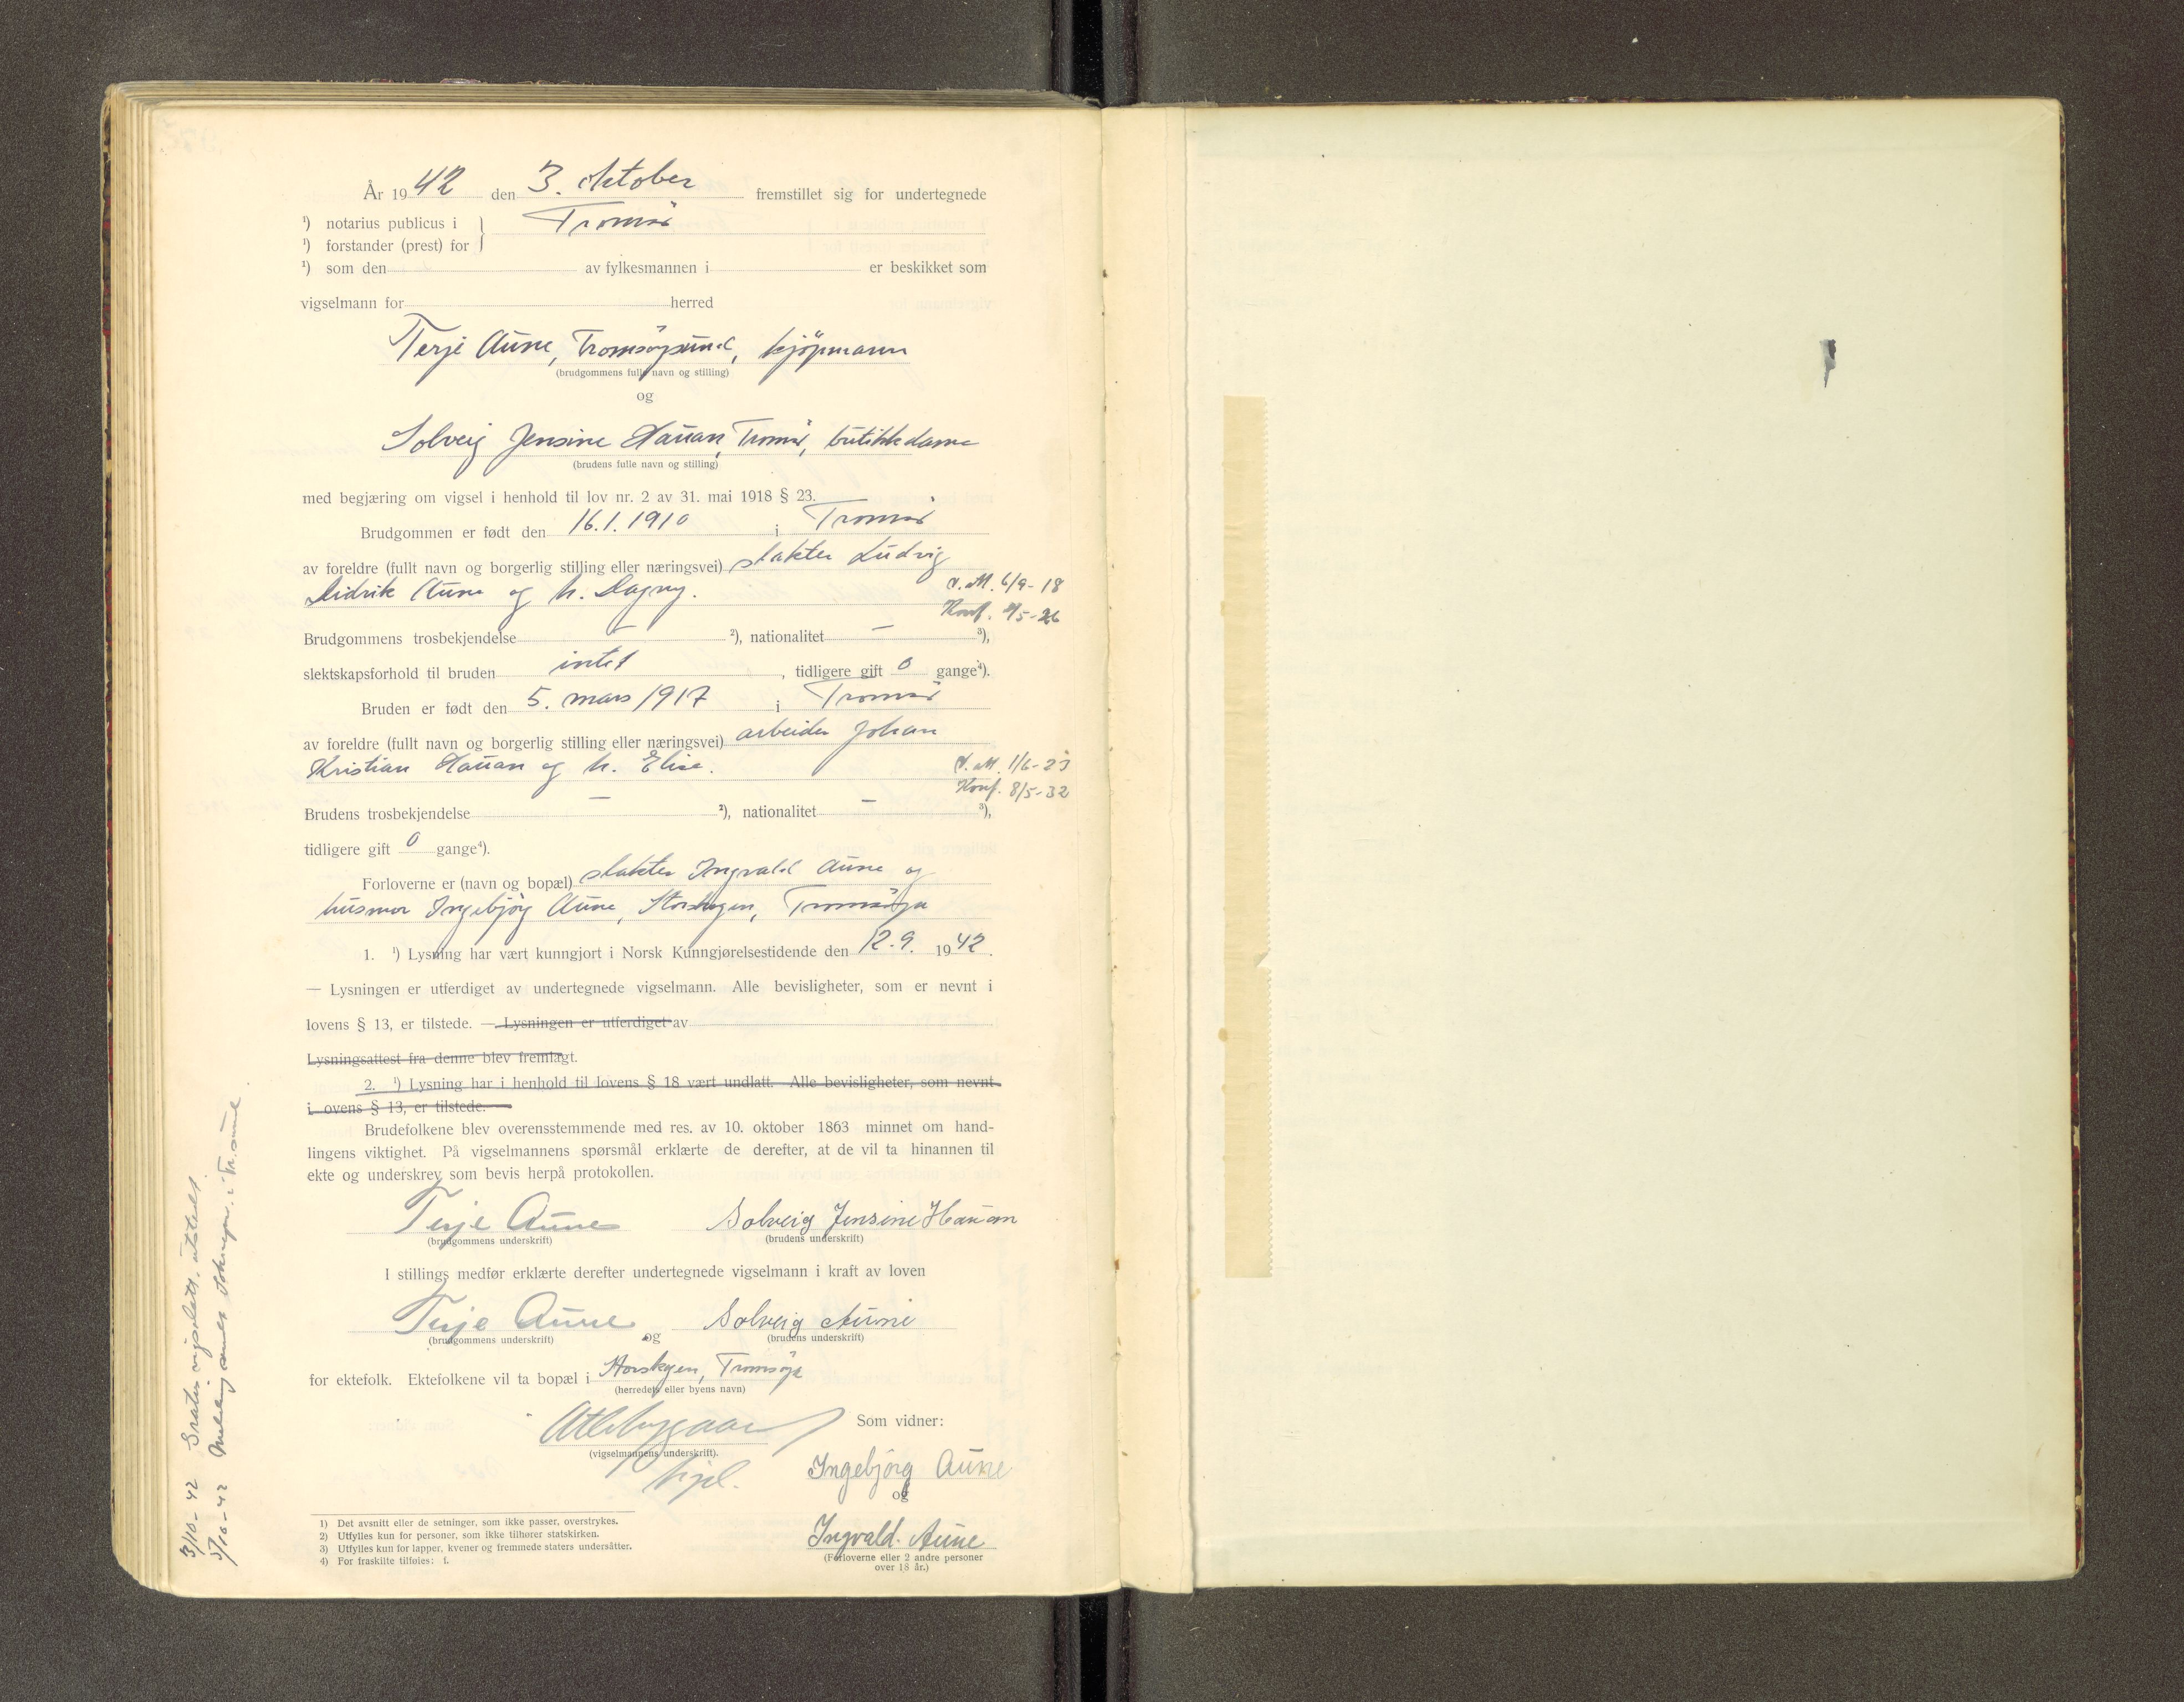 År 1942 den 3. oktober fremstillet sig for undertegnede
¹) notarius publicus i } Tromsö
¹) forstander (prest) for
¹) som den av fylkesmannen i er beskikket som
vigselmann for herred
Terje Aune, Tromsöysund, kjöpmann
(brudgommens fulle navn og stilling)
og
Solveig Jensine Hauan, Tromsö, butikkdame
(brudens fulle navn og stilling)
med begjæring om vigsel i henhold til lov nr. 2 av 31. mai 1918 § 23.
Brudgommen er født den 16.1.1910 i Tromsö
av foreldre (fullt navn og borgerlig stilling eller næringsvei) slakter Ludvig
Didrik Aune og h. Dagny. V.att. 6/9-18
Konf. /5-26
Brudgommens trosbekjendelse — ²), nationalitet — ³),
slektskapsforhold til bruden intet, tidligere gift 0 gange⁴).
Bruden er født den 5. mars 1917 i Tromsö
av foreldre (fullt navn og borgerlig stilling eller næringsvei) arbeider Johan
Kristian Hauan og h. Elise. V.att. 1/6-23
Konf. 8/5-32
Brudens trosbekjendelse — ²), nationalitet — ³),
tidligere gift 0 gange⁴).
Forloverne er (navn og bopæl) slakter Ingvald Aune og
husmor Ingebjörg Aune, Storskogen, Tromsöya
1. ¹) Lysning har vært kunngjort i Norsk Kunngjørelsestidende den 12.9. 1942.
— Lysningen er utferdiget av undertegnede vigselmann. Alle bevisligheter, som er nevnt i
lovens § 13, er tilstede. — Lysningen er utferdiget av
Lysningsattest fra denne blev fremlagt.
2. ¹) Lysning har i henhold til lovens § 18 vært undlatt. Alle bevisligheter, som nevnt
i ovens § 13, er tilstede.
Brudefolkene blev overensstemmende med res. av 10. oktober 1863 minnet om hand-
lingens viktighet. På vigselmannens spørsmål erklærte de derefter, at de vil ta hinannen til
ekte og underskrev som bevis herpå protokollen.
Terje Aune Solveig Jensine Hauan
(brudgommens underskrift) (brudens underskrift)
I stillings medfør erklærte derefter undertegnede vigselmann i kraft av loven
Terje Aune og Solveig Aune
(brudgommens underskrift) (brudens underskrift)
for ektefolk. Ektefolkene vil ta bopæl i Storskogen, Tromsöya
(herredets eller byens navn)
Som vidner:
(vigselmannens underskrift).
Ingebjörg Aune
og
Ingvald. Aune
(Forloverne eller 2 andre personer
over 18 år.)
1) Det avsnitt eller de setninger, som ikke passer, overstrykes.
2) Utfylles kun for personer, som ikke tilhører statskirken.
3) Utfylles kun for lapper, kvener og fremmede staters undersåtter.
4) For fraskilte tilføies: f.
3/10-42 Gratis vigselatt. utstedt.
5/10-42 Melding sendt soknepr. i Tr.sund.